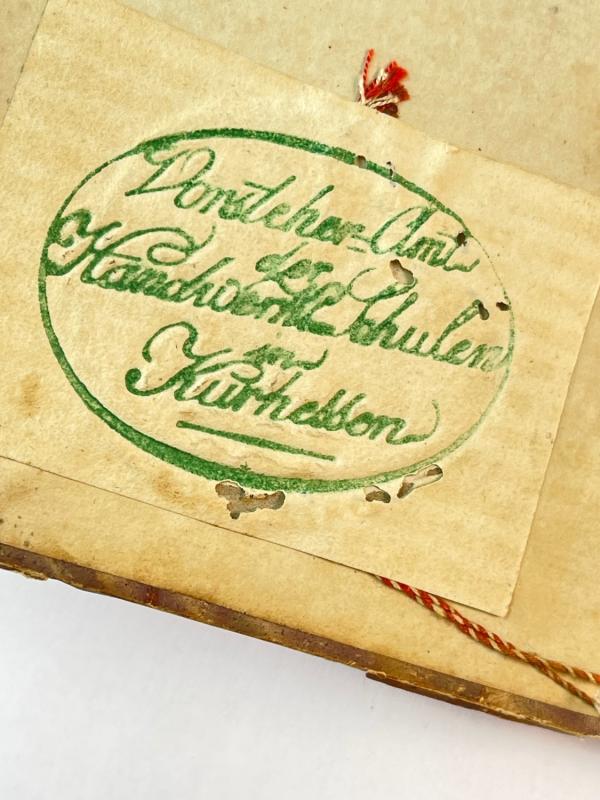 Vorsteher=Amt
der
Handwerks Schulen
in
Kurhessen